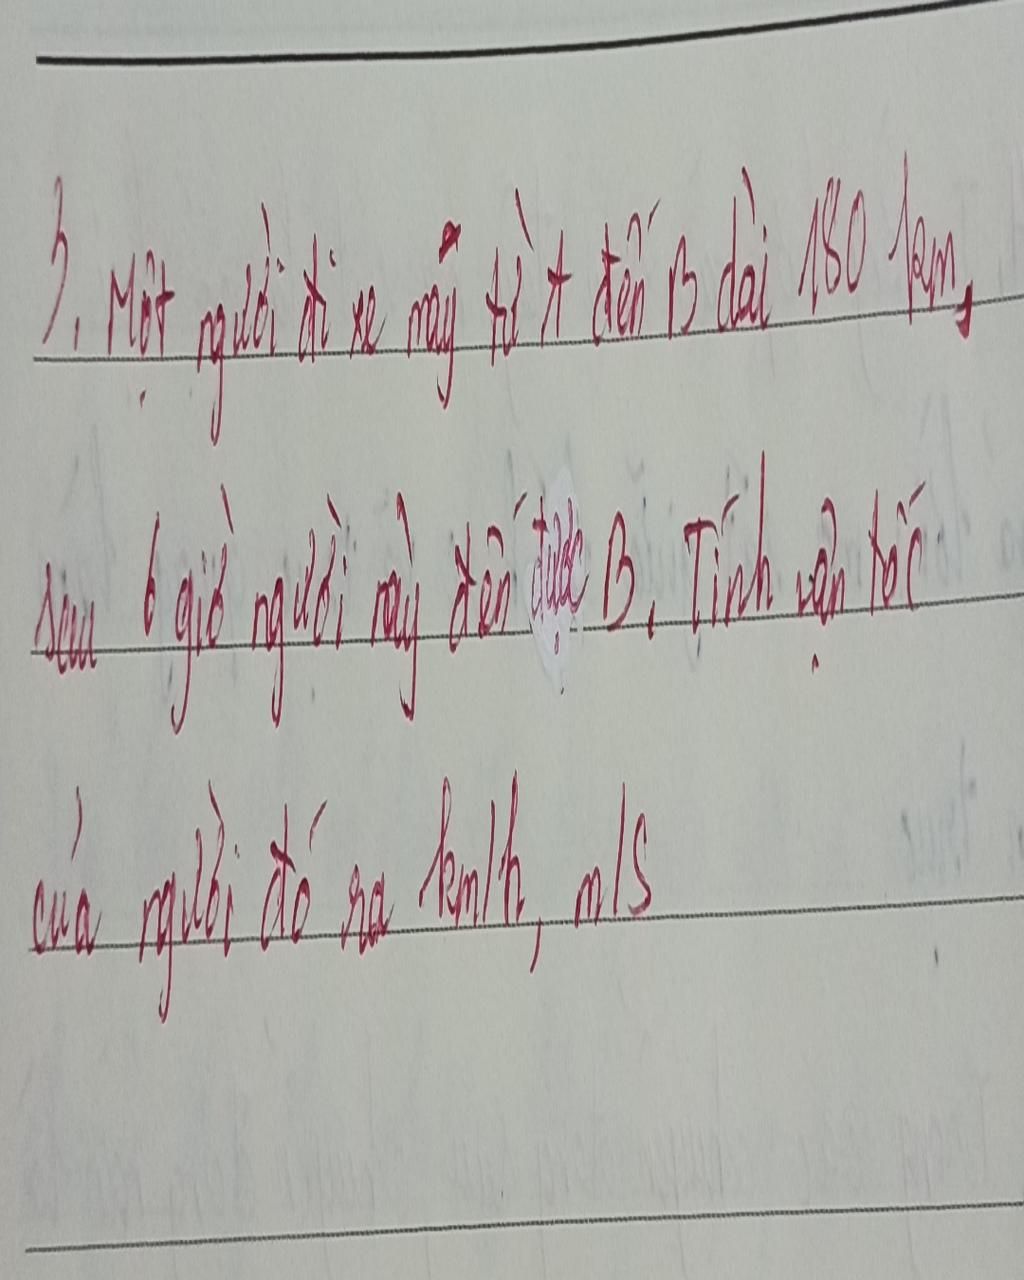 3. Một người đi xe máy từ A đến B dài 180 km,
sau 6 giờ người này đến được B. Tính vận tốc
của người đó ra km/h, m/s